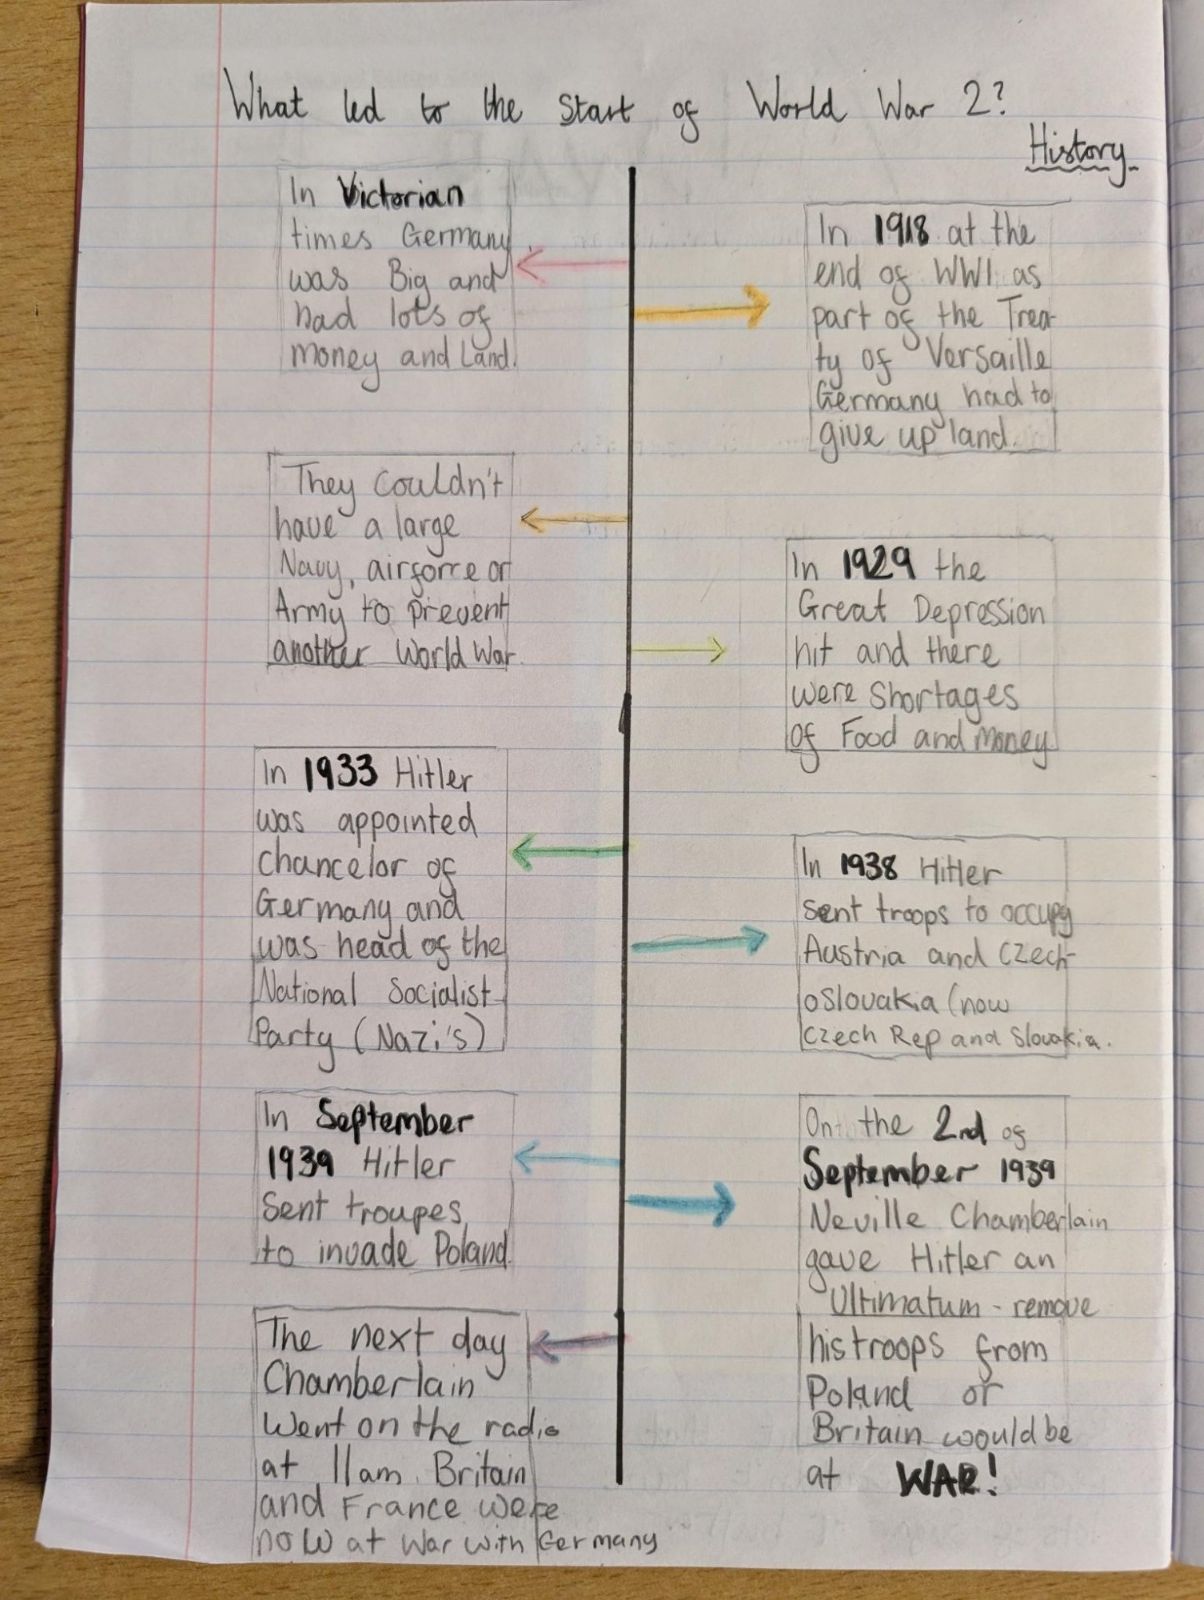 What led to the start of World War 2?
History
In Victorian
times Germany
was Big and
had lots of
money and Land.
In 1918 at the
end of WW1 as
part of the Trea-
ty of Versaille
Germany had to
give up land.
They couldn't
have a large
Navy, airforce or
Army to prevent
another World War
In 1929 the
Great Depression
hit and there
were shortages
of Food and money
In 1933 Hitler
was appointed
chancelor of
Germany and
was head of the
National Socialist
Party (Nazi's)
In 1938 Hitler
sent troops to occupy
Austria and Czech-
oslovakia (now
Czech Rep and Slovakia.
In September
1939 Hitler
sent troupes
to invade Poland
On the 2nd of
September 1939
Neville Chamberlain
gave Hitler an
Ultimatum - remove
his troops from
Poland or
Britain would be
at WAR!
The next day
Chamberlain
went on the radio
at 11am. Britain
and France were
now at War with Germany